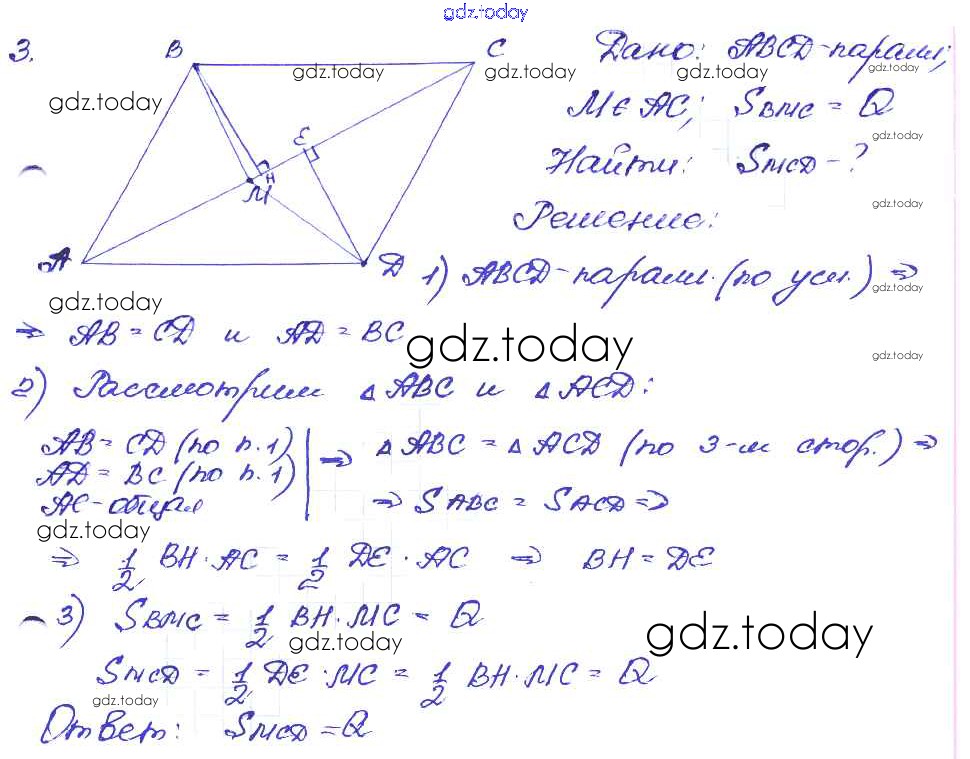 gdz.today
3.
B
C
Дано: ABCD-парал.;
gdz.today gdz.today gdz.today
gdz.today
M∈AC; S_BMC = Q
gdz.today
E
H
M
Найти: S_MCD - ?
gdz.today
Решение:
A
D
1) ABCD-парал. (по усл.) ⇒
gdz.today
gdz.today
⇒ AB = CD и AD = BC
gdz.today
gdz.today
2) Рассмотрим △ABC и △ACD:
AB = CD (по п.1)
AD = BC (по п.1)
AC-общая
⇒ △ABC = △ACD (по 3-м стор.) ⇒
⇒ S_ABC = S_ACD ⇒
gdz.today
⇒ 1/2 BH · AC = 1/2 DE · AC ⇒ BH = DE
3) S_BMC = 1/2 BH · MC = Q
gdz.today
gdz.today
S_MCD = 1/2 DE · MC = 1/2 BH · MC = Q
gdz.today
Ответ: S_MCD = Q